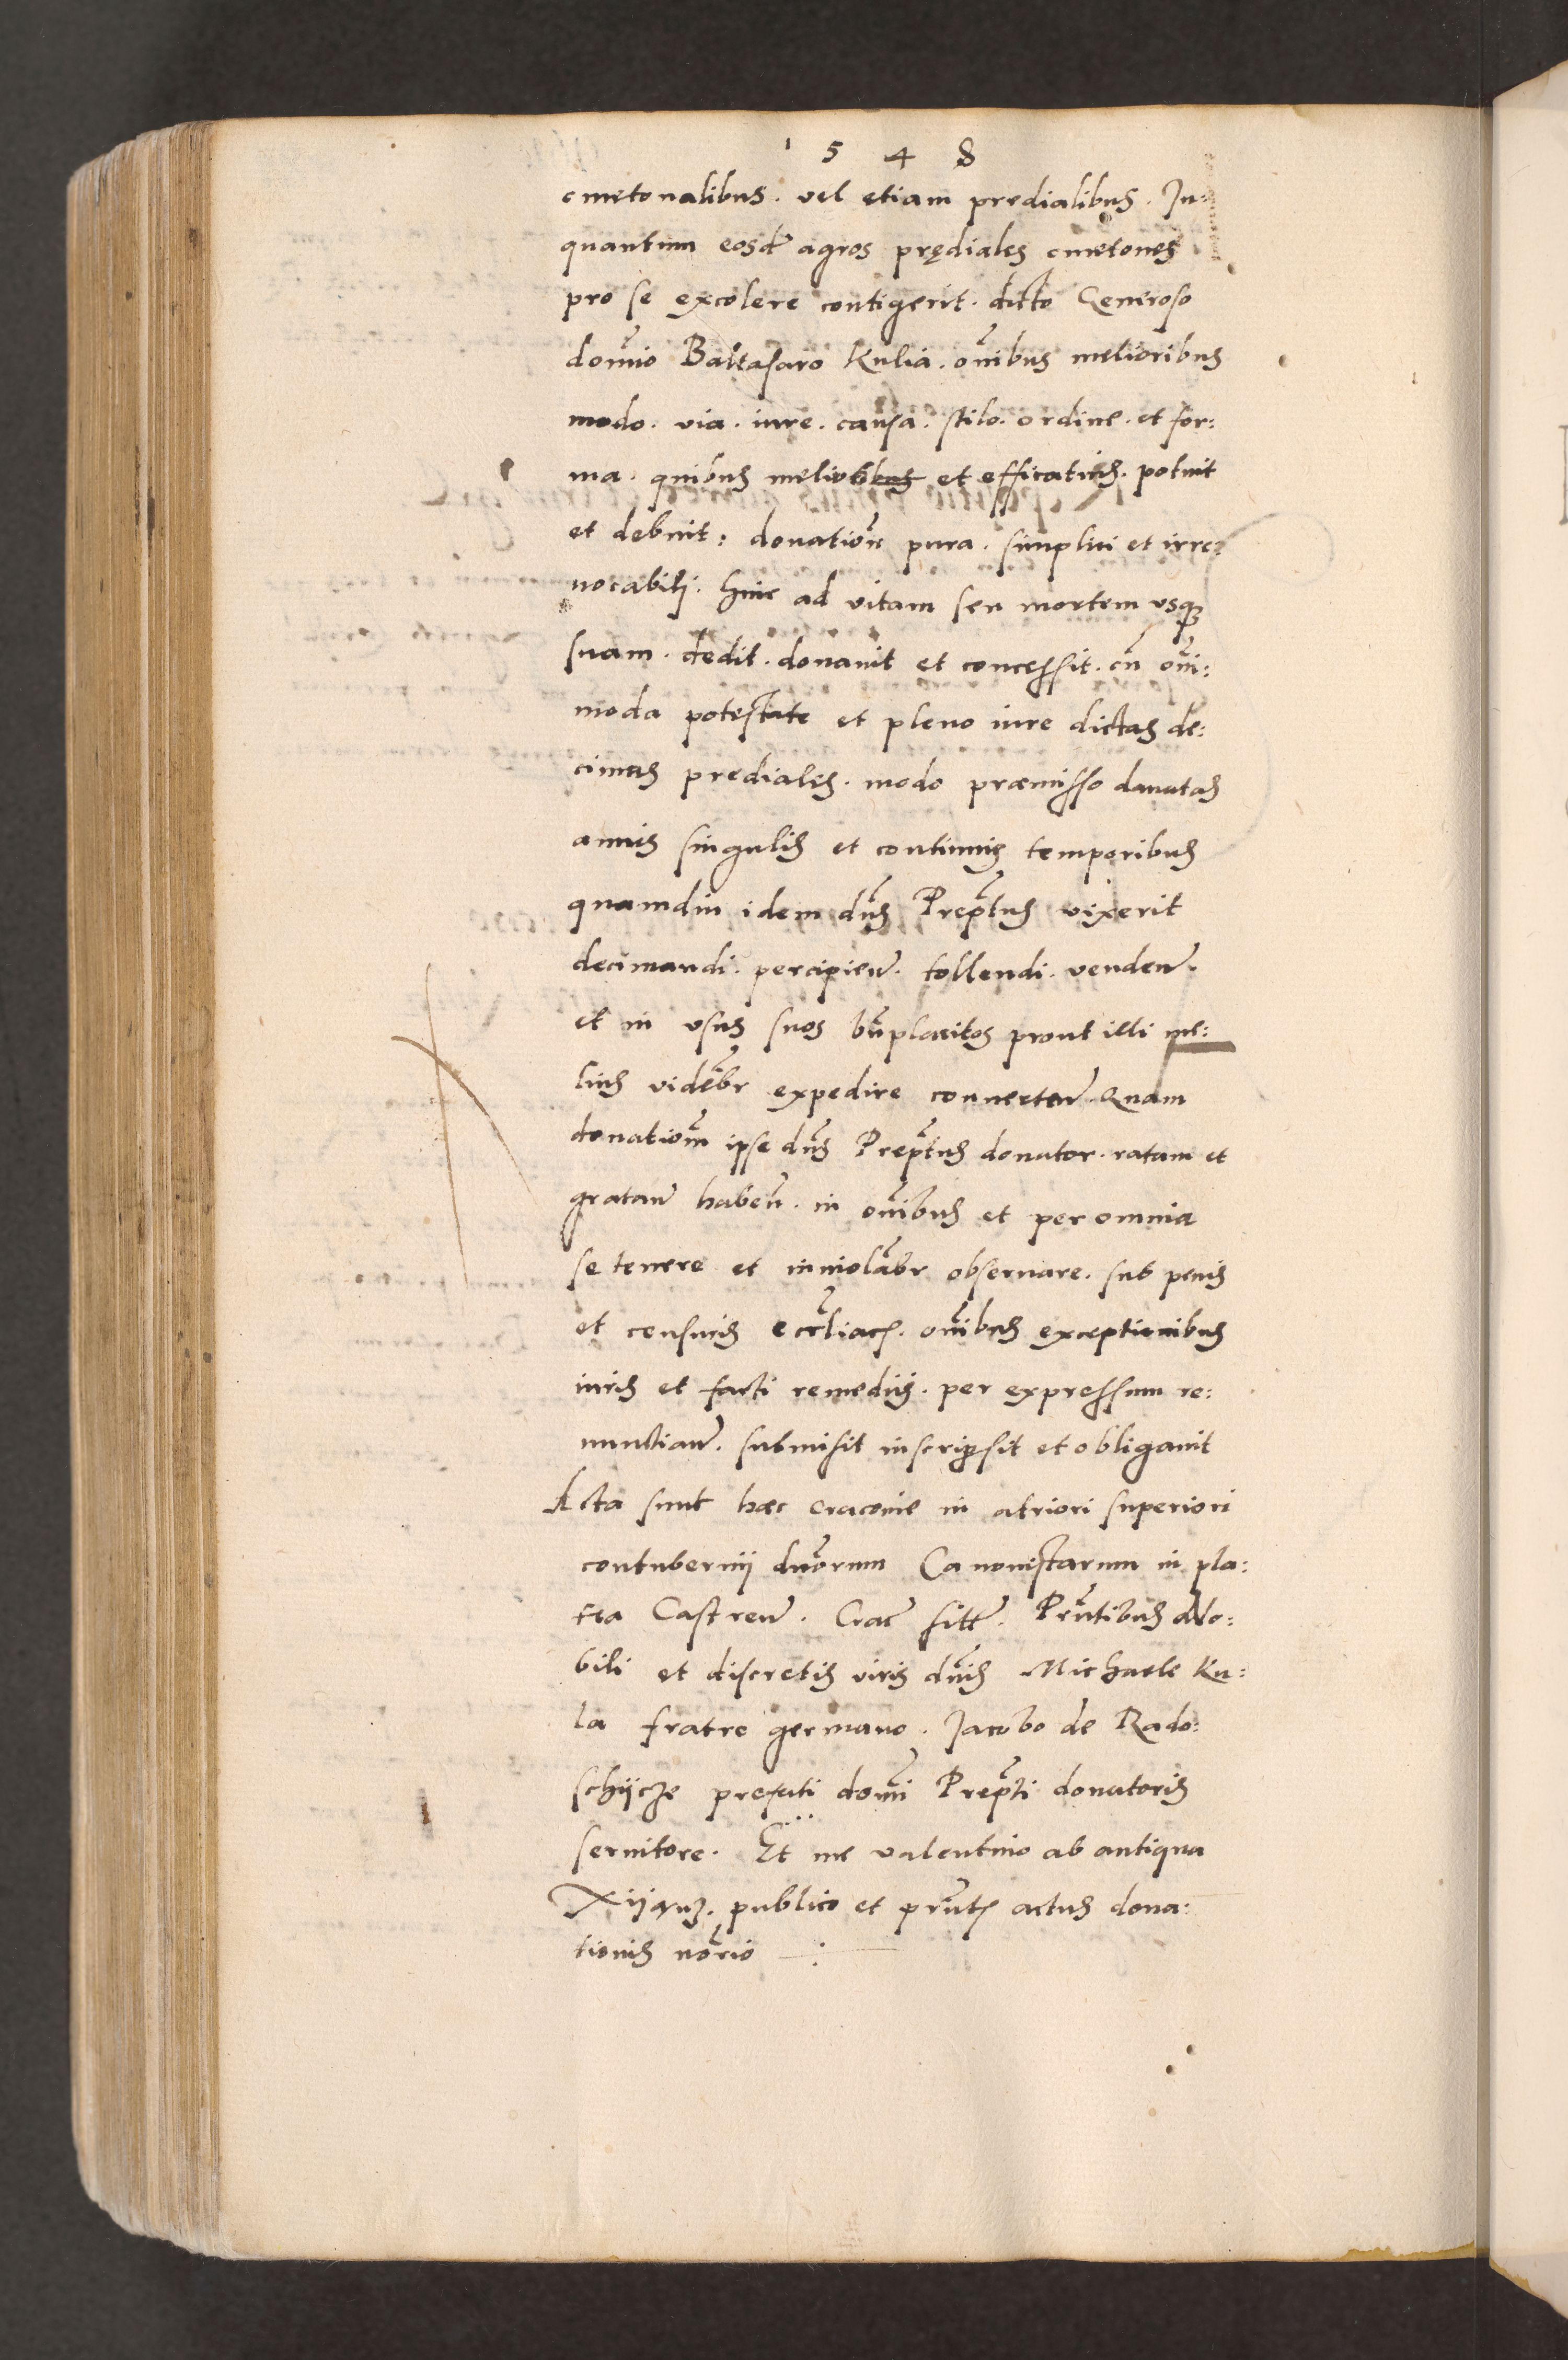 1 5 4 8
cmetonalibus. vel etiam predialibus. In:
quantum eosdē agros prędiales cmetones
pro se excolere contigerit. dicto Generoso
domīo Baltasaro Kulia. om̄ibus melioribus
modo. via. iure. causa. stilo. ordine. et for:
ma. quibus melioribus et efficatius. potuit
et debuit: donatioñe pura. simplici et irre:
uocabili. hinc ad vitam seu mortem vsqȝ
suam. dedit. donauit et concessit. cū om̄i:
moda potestate et pleno iure dictas de:
cimas prediales. modo præmisso donatas
annis singulis et continuis temporibus
quamdiu idem dñs Prep̄tus vixerit
decimandi. percipien̄. tollendi. venden̄.
et in vsus suos bn̄placitos prout illi me:
lius videbr̄ expedire conuerten̄ Quam
donatiom̄ ipse dñs Prep̄tus donator. ratam et
gratam haben̄. in om̄ibus et per omnia
se tenere et inuiolabr̄ obseruare. sub penis
et censuris eccl̄iacȝ. om̄ibus exceptionibus
iuris et facti remediis. per expressum re:
nunctian̄. submisit inscripsit et obligauit
Acta sunt hæc cracouie in atriori superiori
contubernij dn̄orum Canonistarum in pla:
tea Castren̄. Crac̄ sitt̄. Prn̄tibus No:
bili et discretis viris dn̄is Michaele Ku:
la fratre germano. Jacobo de Rado:
schijcze prefati domī Prep̄ti donatoris
seruitore. Et me valentino ab antiqua
publico et prn̄tȝ actus dona:
tionis notr̄io